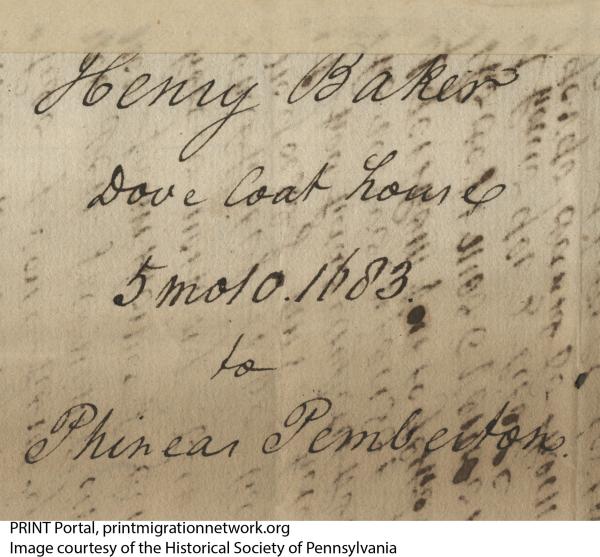 Henry Baker
Dove Coat house
5 mo 10. 1683.
to
Phineas Pemberton.
PRINT Portal, printmigrationnetwork.org
Image courtesy of the Historical Society of Pennsylvania